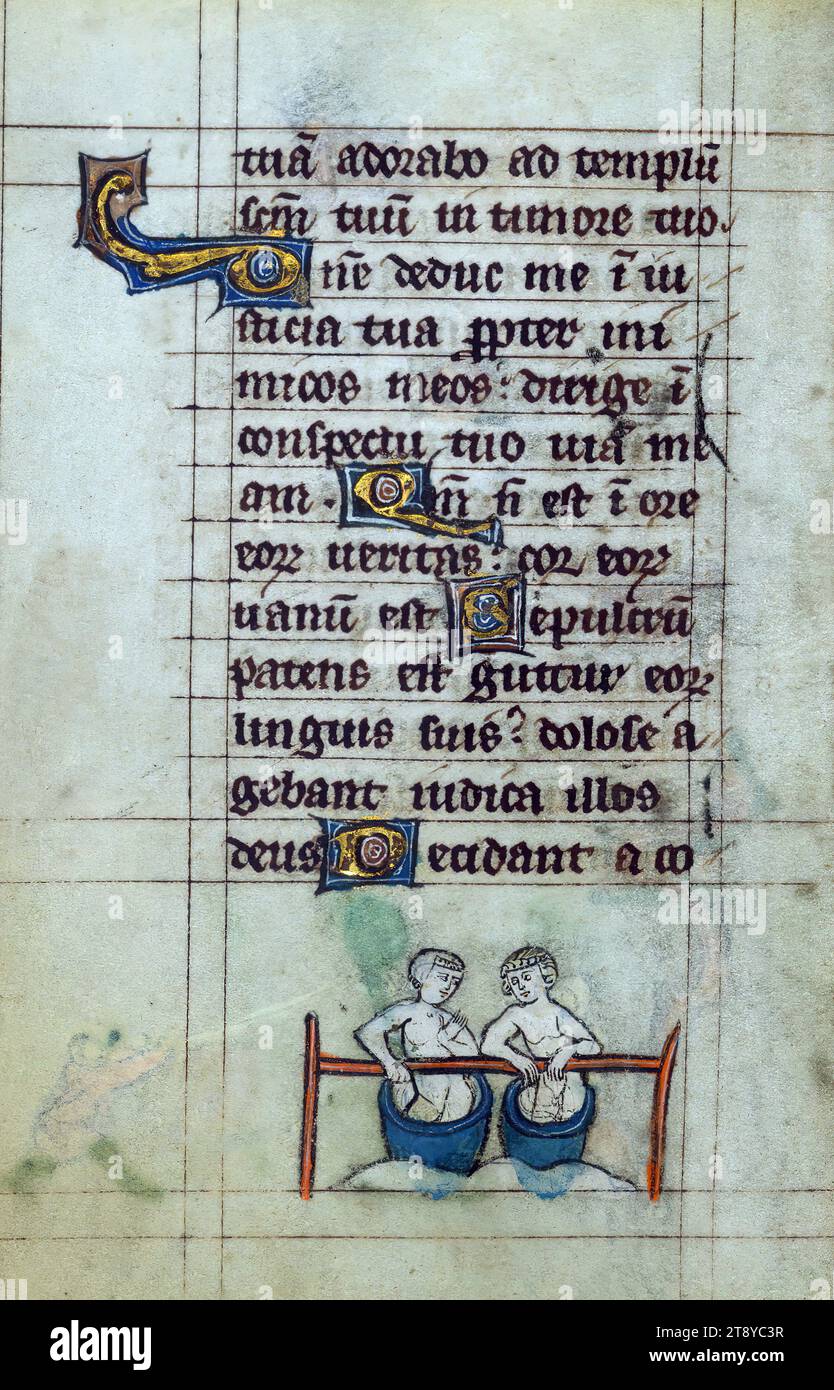 tuā adorabo ad templū
scm̄ tuū in timore tuo.
Dn̄e deduc me ī iu
sticia tua ꝓpter ini
micos meos: dirige ī
conspectu tuo uiā me
am. Qm̄ n̄ est ī ore
eoꝝ ueritas: cor eoꝝ
uanū est Sepulcrū
patens est guttur eoꝝ
linguis suis? dolose a
gebant iudica illos
deus Decidant a co
alamy
alamy
Image ID: 2T8YC3R
www.alamy.com